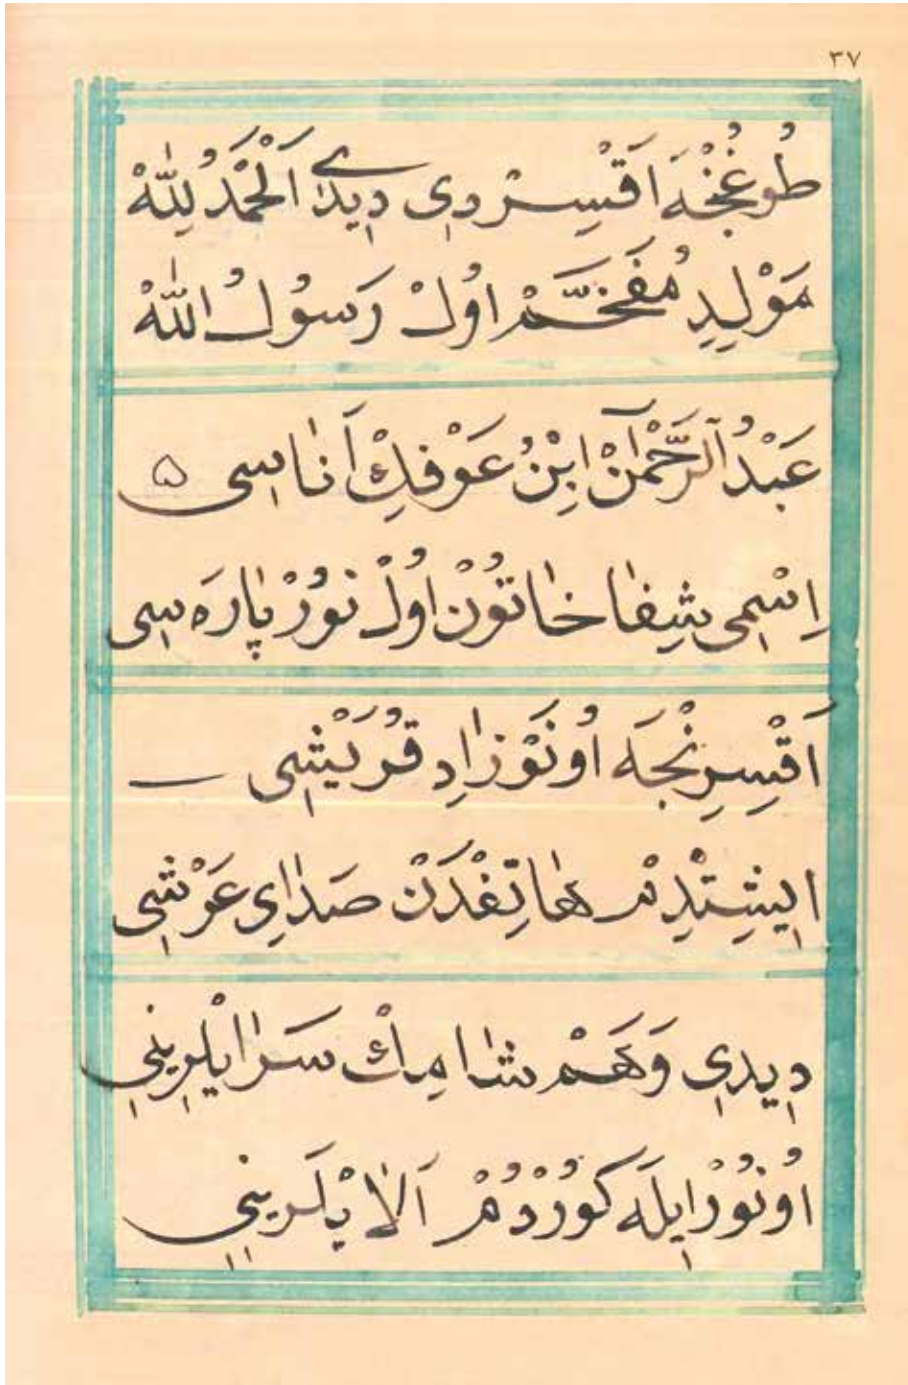 ٣٧
طُوغُنْجَه اَقْسِرْدِی دِیدٖی اَلْحَمْدُ لِلّٰهْ
مَوْلِدِ مُفَخَّمْ اوُلْ رَسُولُ اللّٰهْ
عَبْدُ الرَّحْمٰنْ اِبْنُ عَوْفِڭْ اَنَاسِی ۵
اِسْمِی شِفَا خَاتُونْ اوُلْ نُورْ پَارَهسِی
اَقْسِرِنْجَه اوُ نَوْزَادِ قُرَیْشِی
اِیشِتْدِمْ هَاتِفْدَنْ صَدَایِ عَرْشِی
دِیدِی وَهَمْ شَامِڭْ سَرَایْلَرِینِی
اوُ نُورْ اِیلَه کُورْدُومْ اَلَایْلَرِینِی